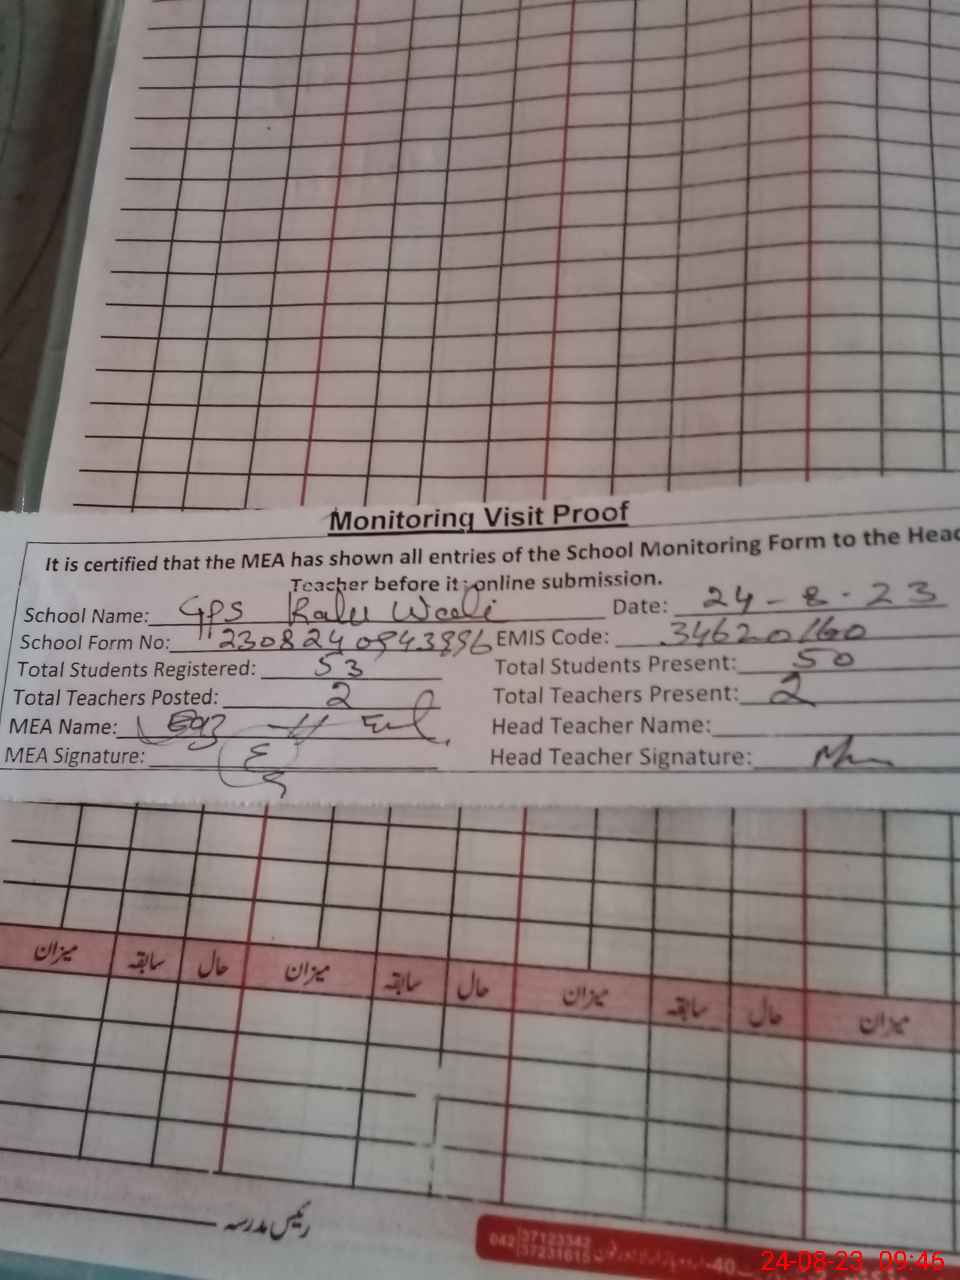 Monitoring Visit Proof
It is certified that the MEA has shown all entries of the School Monitoring Form to the Head
Teacher before it; online submission.
School Name: GPS Date: 24-8-23
School Form No: EMIS Code: 34620160
Total Students Registered: 53 Total Students Present: 50
Total Teachers Posted: 2 Total Teachers Present: 2
MEA Name: Head Teacher Name:
MEA Signature: Head Teacher Signature:
میزان سابقہ حال میزان سابقہ حال میزان سابقہ حال میزان
رئیس مدرسہ
042 37123342
37231615
40-
24-08-23 09:46